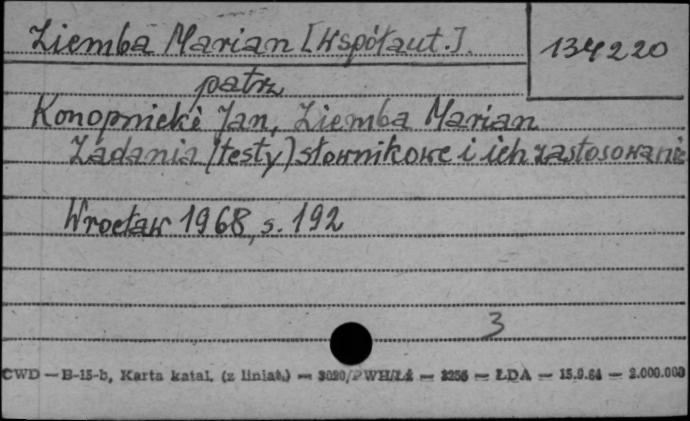 Ziemba Marian [współaut.]
134220
patrz
Konopnicki Jan, Ziemba Marian
Zadania (testy) słownikowe i ich zastosowanie
Wrocław 1968, s. 192
3
CWD — B-15-b, Karta katal. (z liniat.) — 3020/PWH/Łż — 2256 — ŁDA — 15.9.64 — 2.000.000